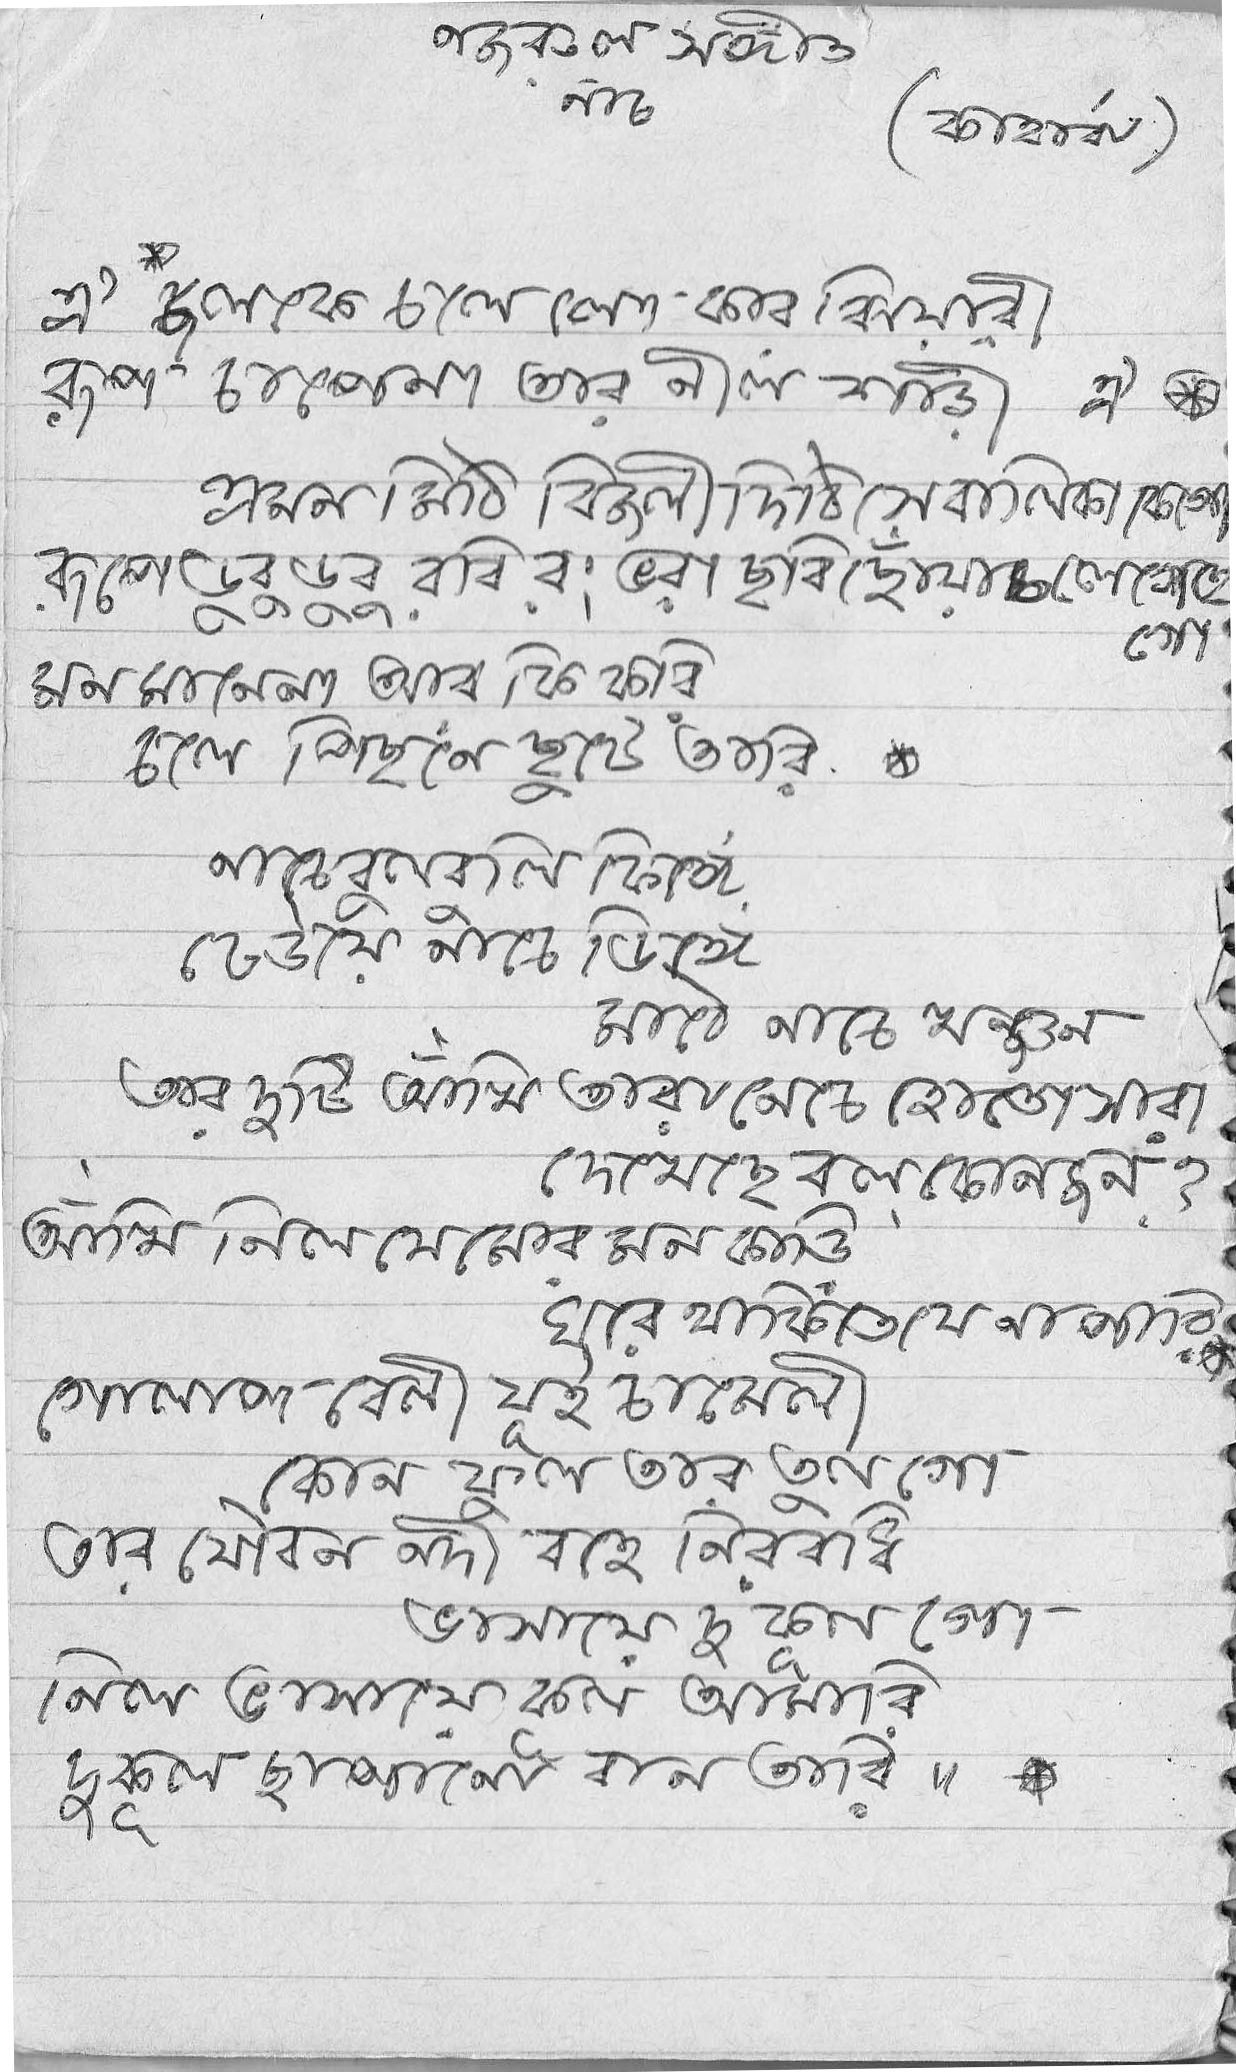 নজরুল সঙ্গীত
নাচ
(কাহার্বা)
ঐ * জলকে চলে লো কার ঝিয়ারী
রূপ চাপেনা তার নীল শাড়ী ঐ *
এমন মিঠি বিজলী দিঠি সে বালিকা কেগো
রূপে ডুবু ডুবু রবির ভরা ছবি ছোঁয়া চলে গেছে
গো
মন মানেনা আর কি করি
চলে পিছনে ছুটে তারি *
নাচে বুলবুলি ফিঙে
ঢেউয়ে নাচে ডিঙে
মাঠে নাচে খঞ্জন
তার দুটি আঁখি তারা নেচে হোতো সারা
দেখেছে বল কোনজন ?
আঁখি নিল যে মোর মন কাড়ি
ঘরে থাকিতে যে না পারি *
গোলাপ বেলী যূই চামেলী
কোন ফুল তার তুল গো
তার যৌবন নদী বহে নিরবধি
ভাসায়ে দু কূল গো
নিল ভাসায়ে কূল আমারি
দুকূল ছাপানো বান তারি ॥ *